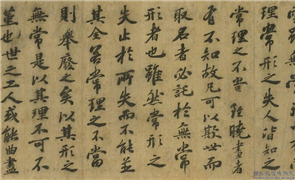 理常形之失人皆知之
常理之不當雖曉畫者
有不知故凡可以欺世而
取名者必託於無常
形者也雖然常形之
失止於所失而不能
其全若常理之不當
則舉廢之矣以其形之
無常是以其理不可不
謹也世之工人或能曲盡